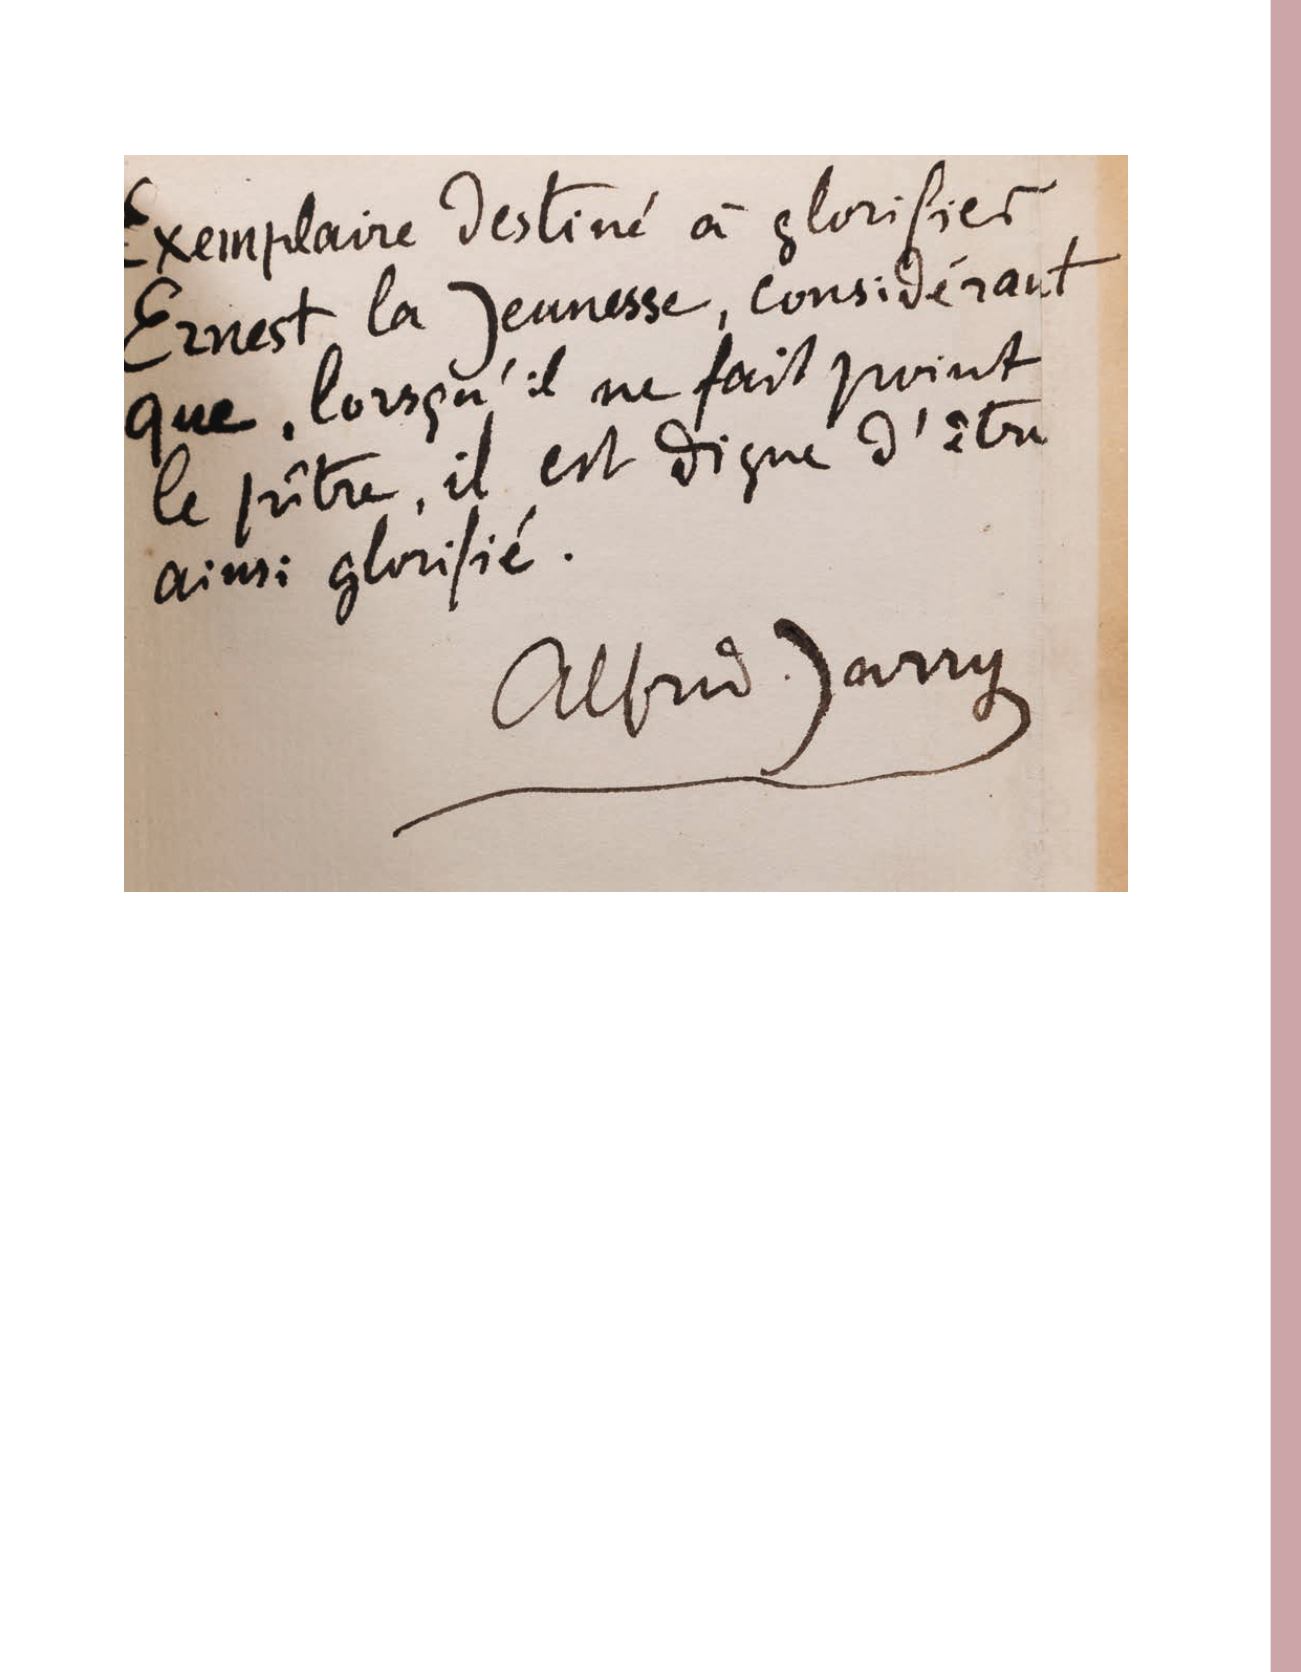 Exemplaire destiné à glorifier
Ernest la Jeunesse, considérant
que, lorsqu'il ne fait point
le pître, il est digne d'être
ainsi glorifié.
Alfred Jarry